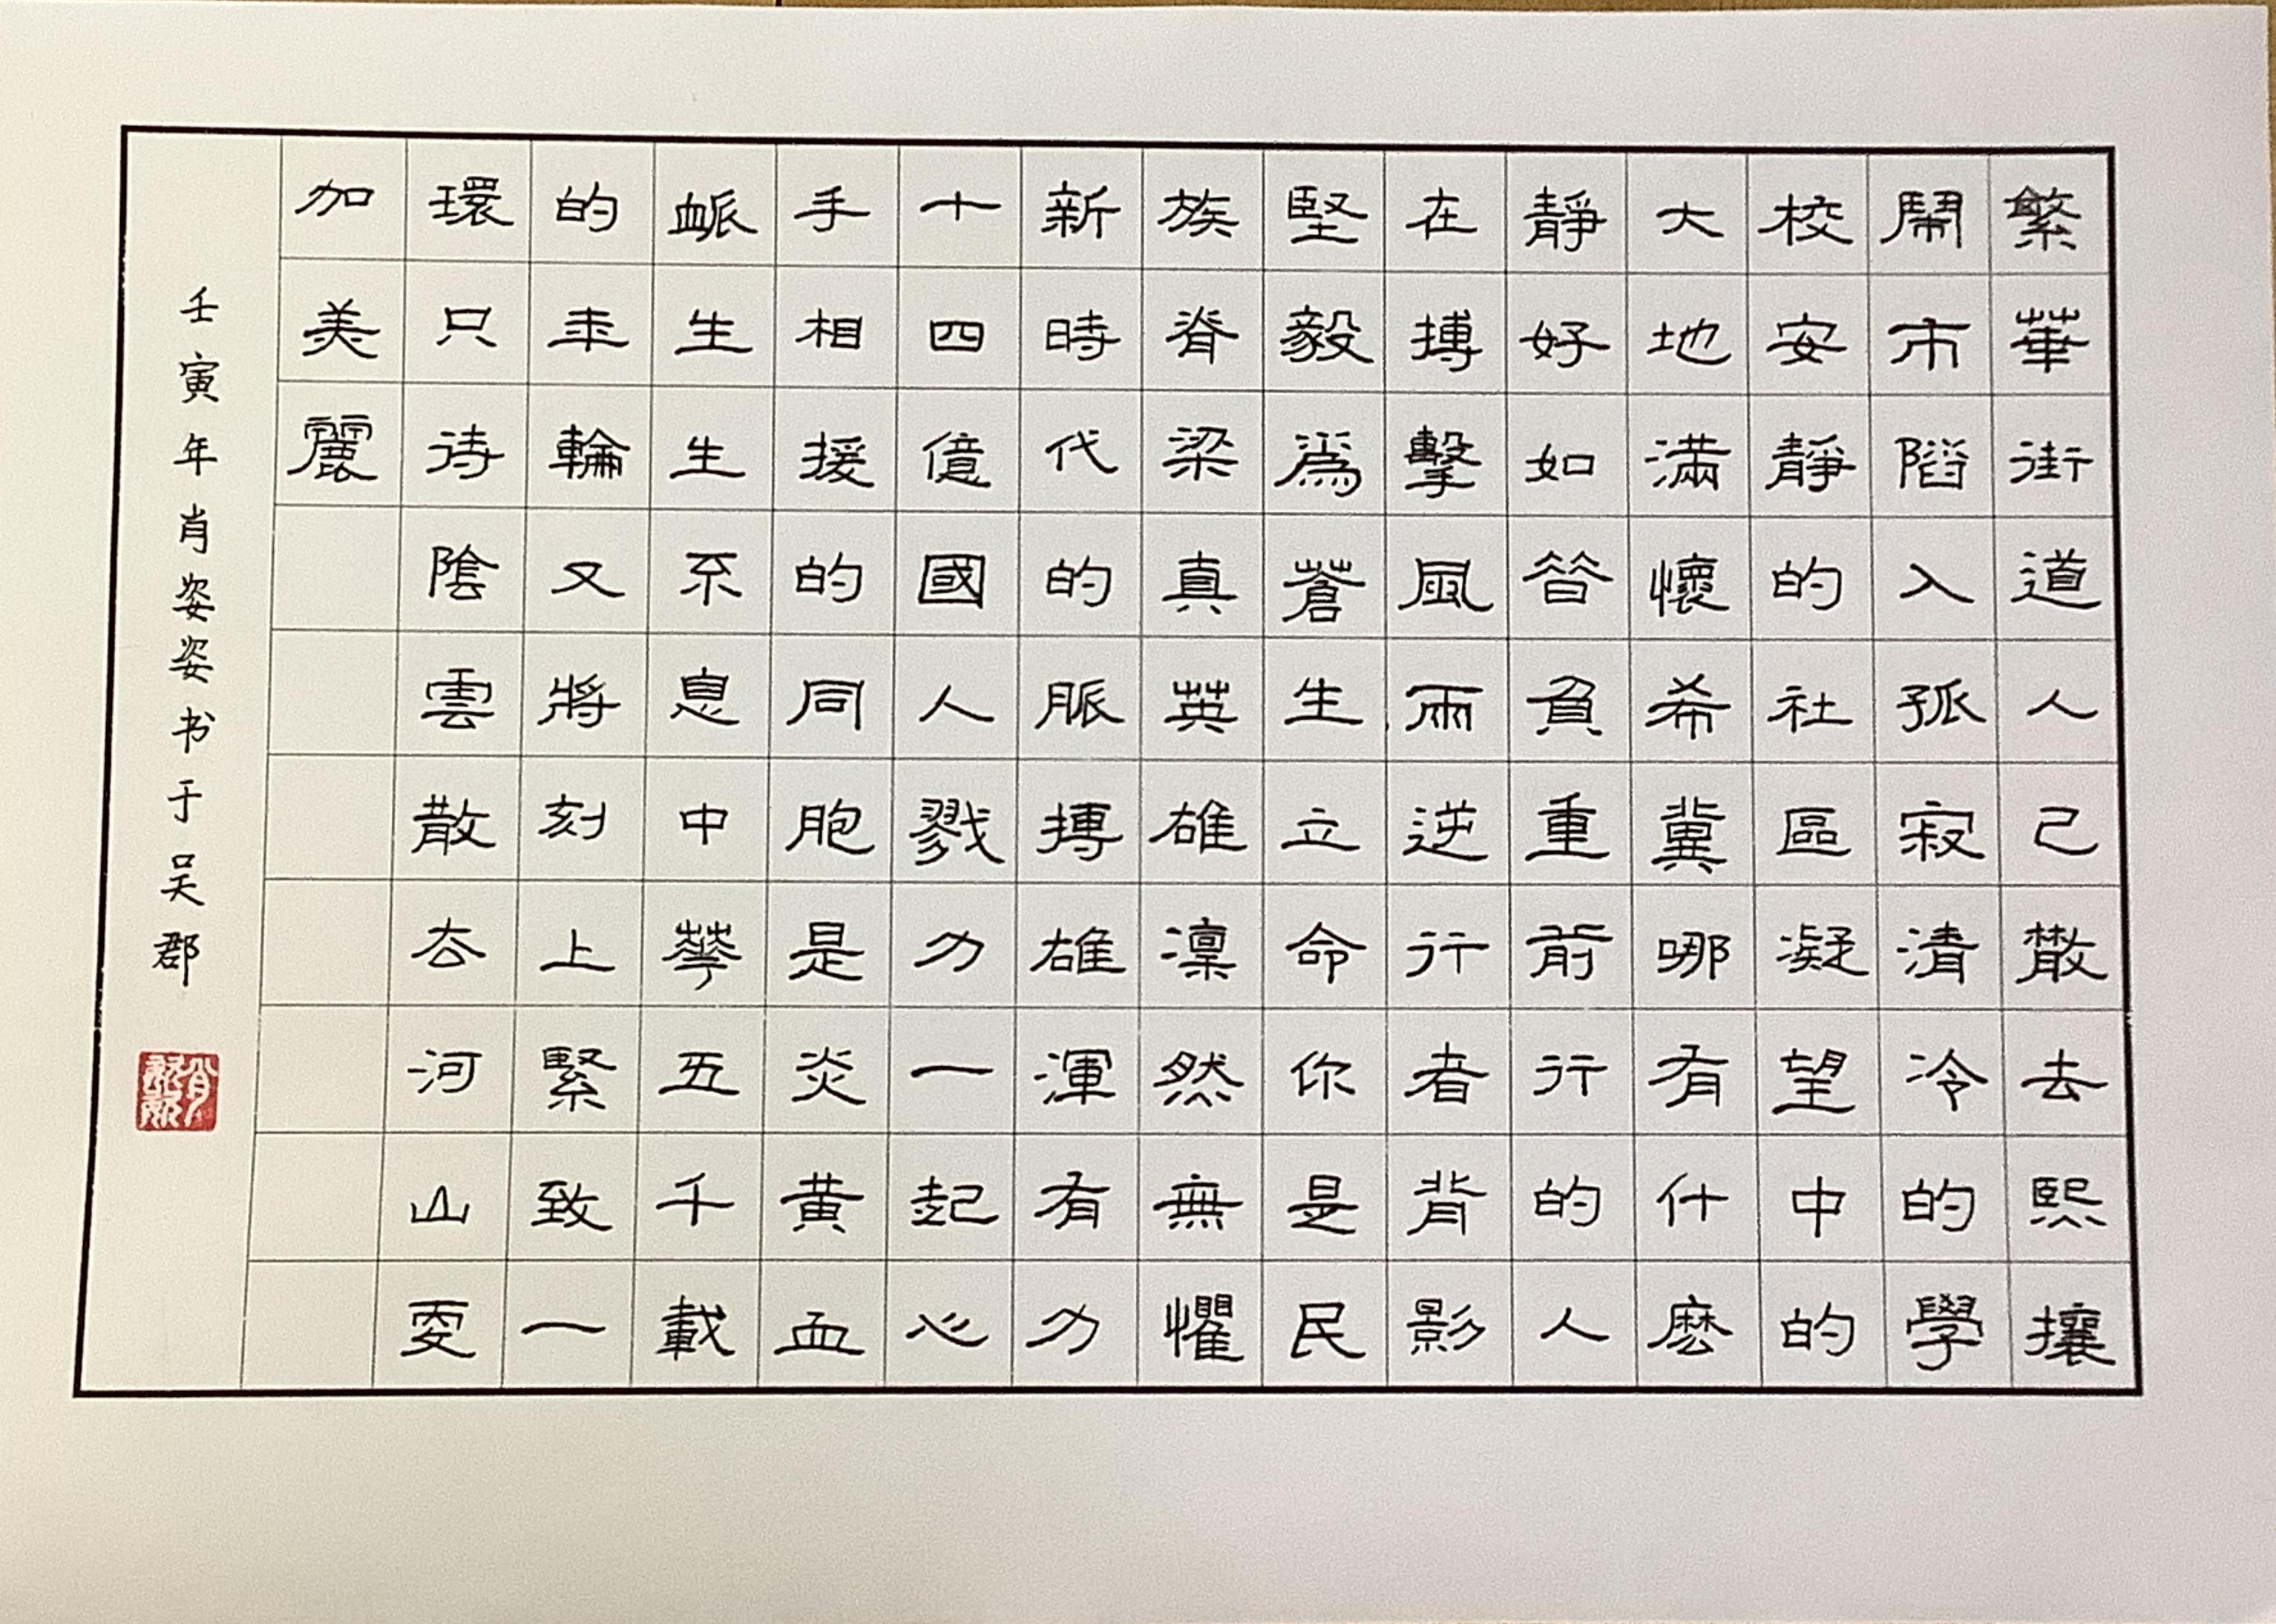 繁華街道人已散去熙攘
鬧市陷入孤寂清冷的學
校安靜的社區凝望中的
大地滿懷希冀哪有什麽
靜好如昔負重前行的人
在搏擊風雨逆行者背影
堅毅爲蒼生立命你是民
族脊梁真英雄凛然無懼
新時代的脈搏雄渾有力
十四億國人戮力一起心
手相援的同胞是炎黄血
脈生生不息中華五千載
的年輪又將刻上緊致一
環只待陰雲散去河山更
加美麗
壬寅年肖姿姿书于吴郡